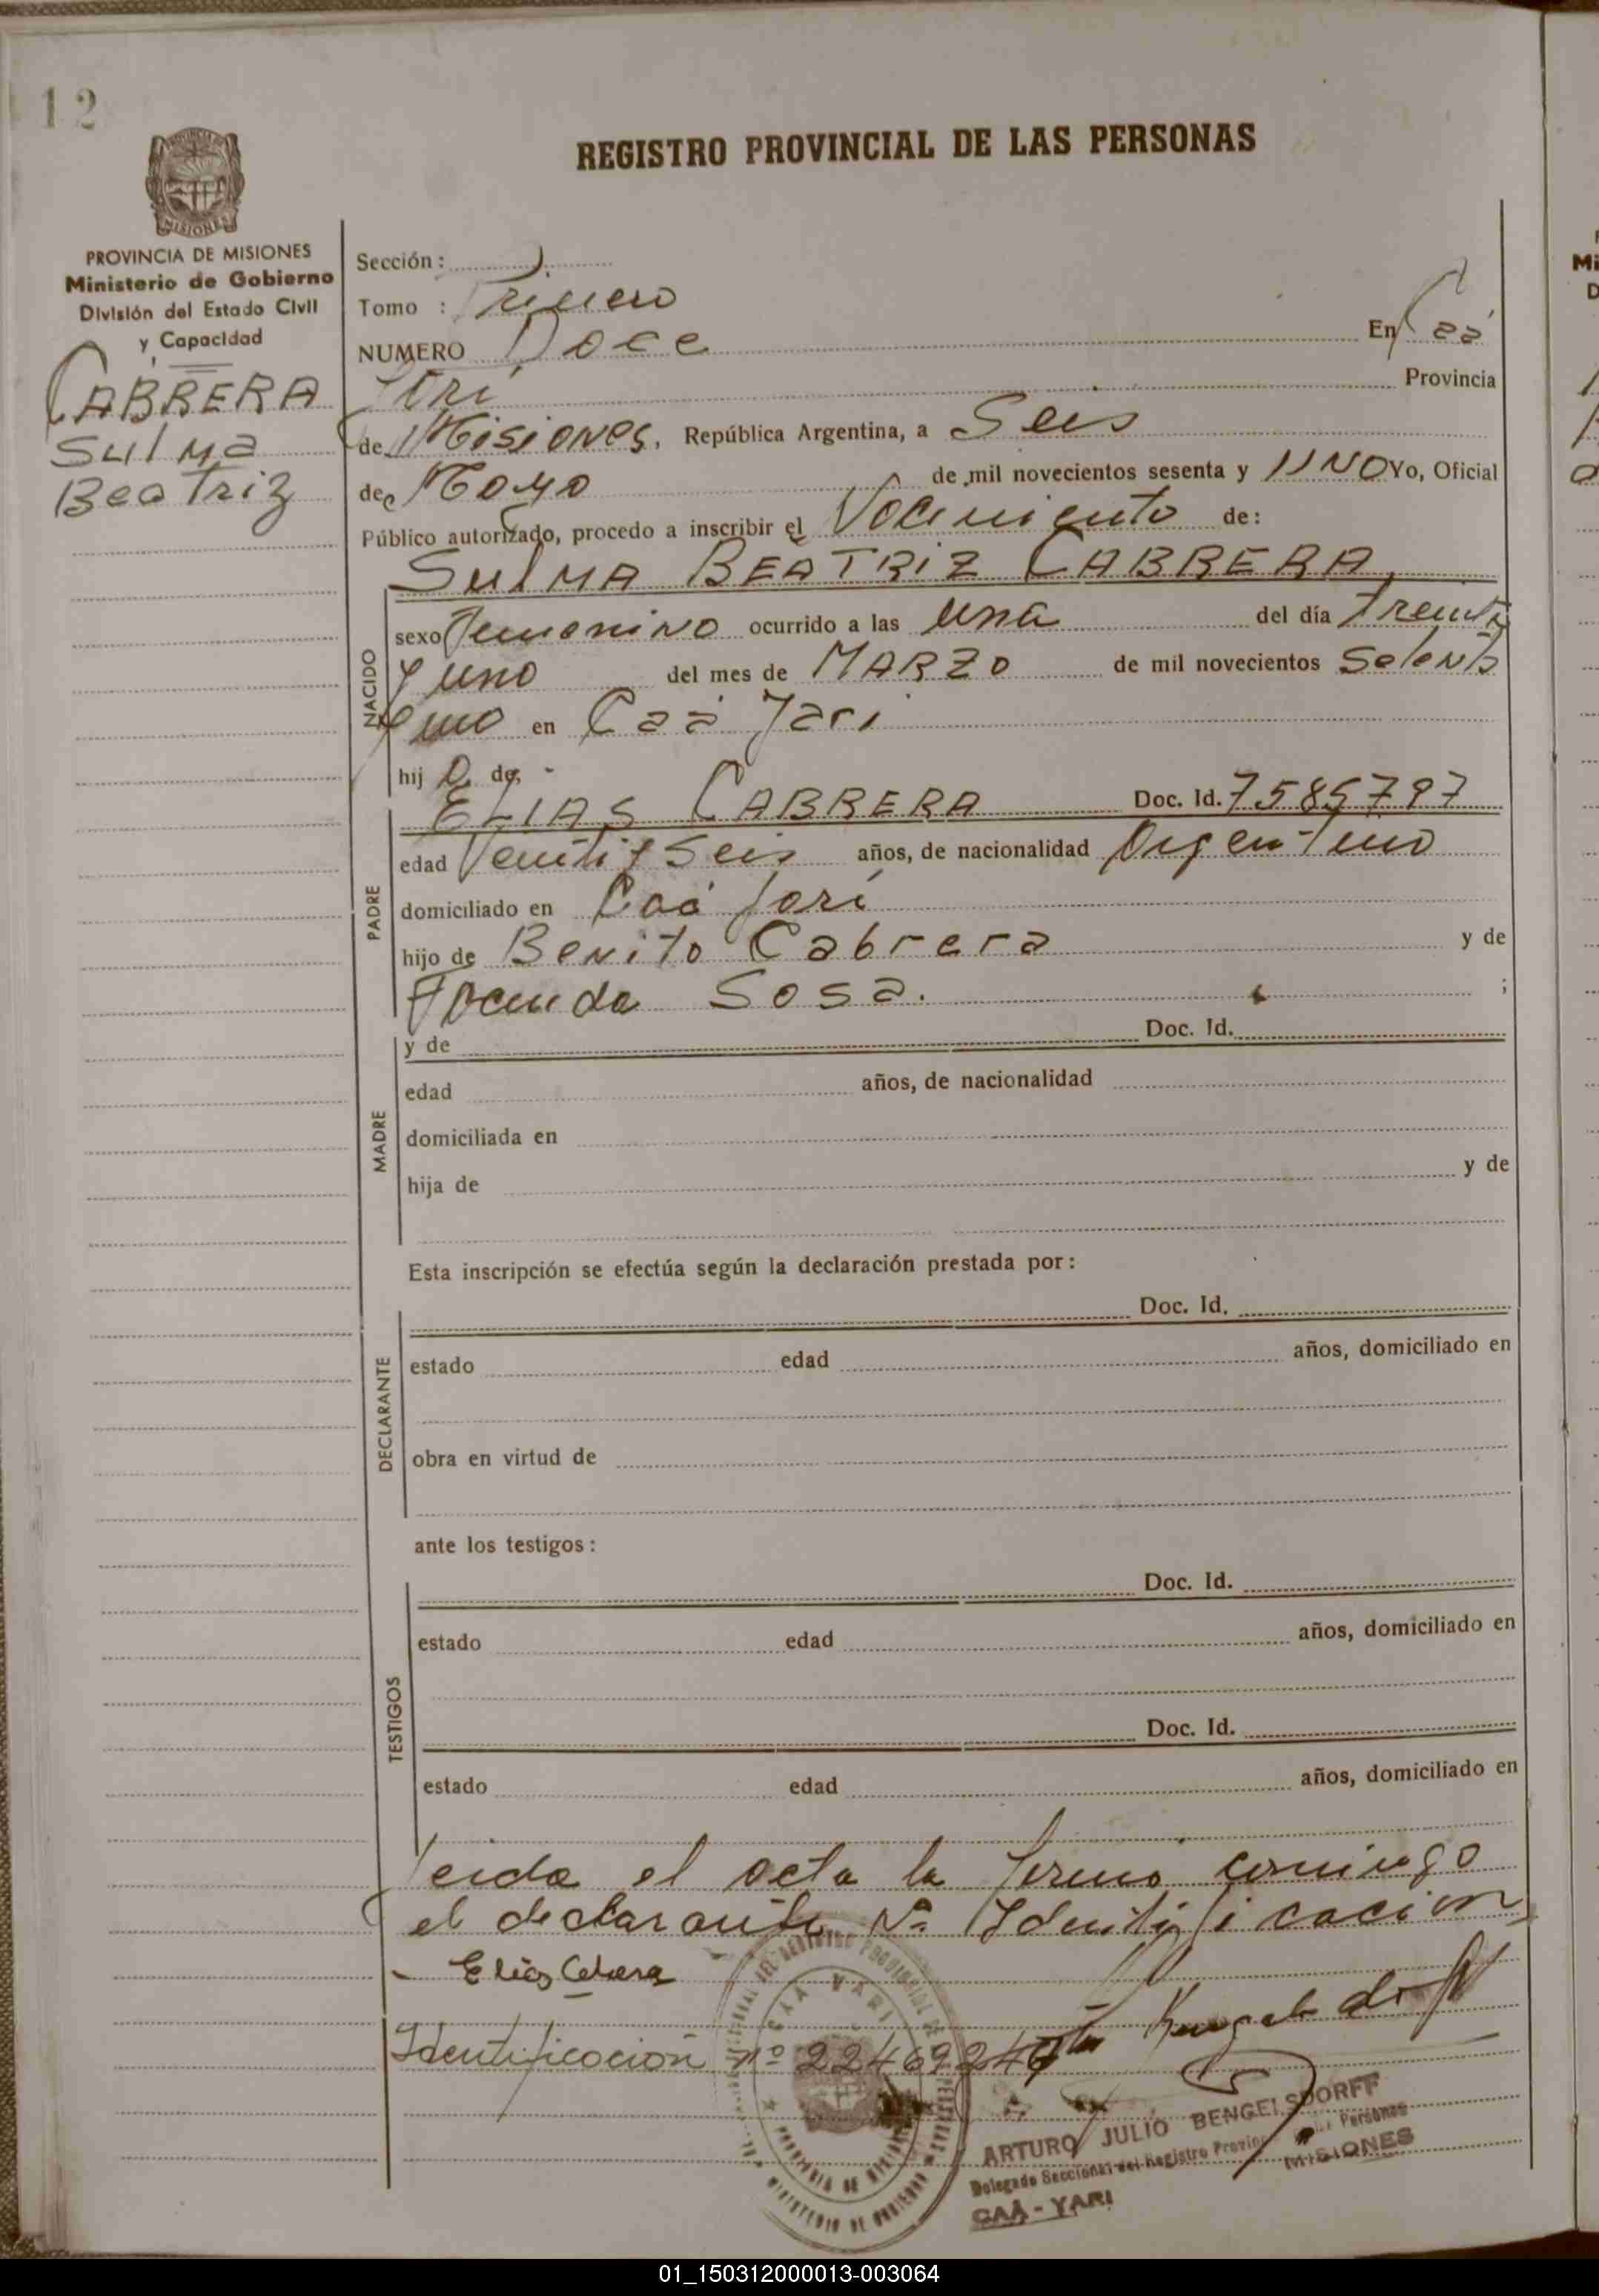 12
REGISTRO PROVINCIAL DE LAS PERSONAS
PROVINCIA DE MISIONES
Ministerio de Gobierno
División del Estado Civil
y Capacidad
CABRERA
Sulma
Beatriz
Sección :
Tomo : Primero
NUMERO Doce En Caá
Yari Provincia
de Misiones, República Argentina, a Seis
de Mayo de mil novecientos sesenta y UNO Yo, Oficial
Público autorizado, procedo a inscribir el Nacimiento de:
Sulma BEATRIZ CABRERA
NACIDO
sexo Femenino ocurrido a las una del día Treinta
y uno del mes de MARZO de mil novecientos Setenta
y uno en Caá Yari
hij a de, -
PADRE
ELIAS CABRERA Doc. Id. 7585797
edad Veinti y Seis años, de nacionalidad Argentino
domiciliado en Caá Yari
hijo de Benito Cabrera y de
Sosa. ;
MADRE
y de Doc. Id.
edad años, de nacionalidad
domiciliada en
hija de y de
Esta inscripción se efectúa según la declaración prestada por :
DECLARANTE
Doc. Id.
estado edad años, domiciliado en
obra en virtud de
ante los testigos :
TESTIGOS
Doc. Id.
estado edad años, domiciliado en
Doc. Id.
estado edad años, domiciliado en
Leida el acta la firmó conmigo
el declarante Na Identificacion
- Elias Cabrera
Identificación nº 22469246
ARTURO JULIO BENGELSDORFF
Delegado Seccional del Registro Provin Personas
MISIONES
CAÁ - YARI
CAA YARI
PROVINCIA DE MISIONES
MINISTERIO DE GOBIERNO
01_150312000013-003064